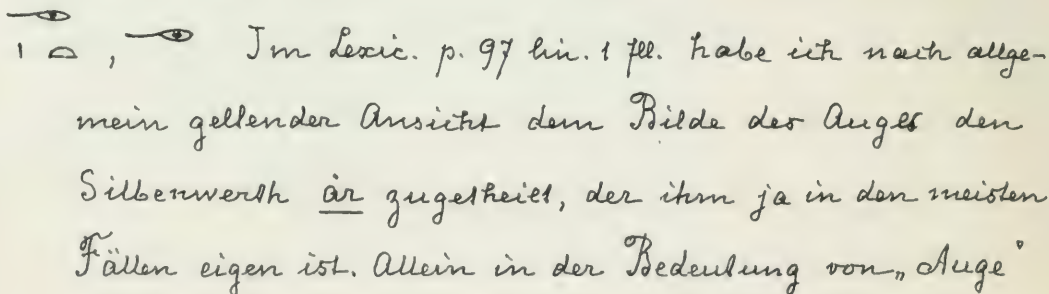 𓁹𓏤𓏏, 𓁹 Im Lexic. p. 97 lin. 1 fll. habe ich nach allge-
mein geltender Ansicht dem Bilde des Auges den
Silbenwerth ȧr zugetheilt, der ihm ja in den meisten
Fällen eigen ist. Allein in der Bedeutung von „Auge“